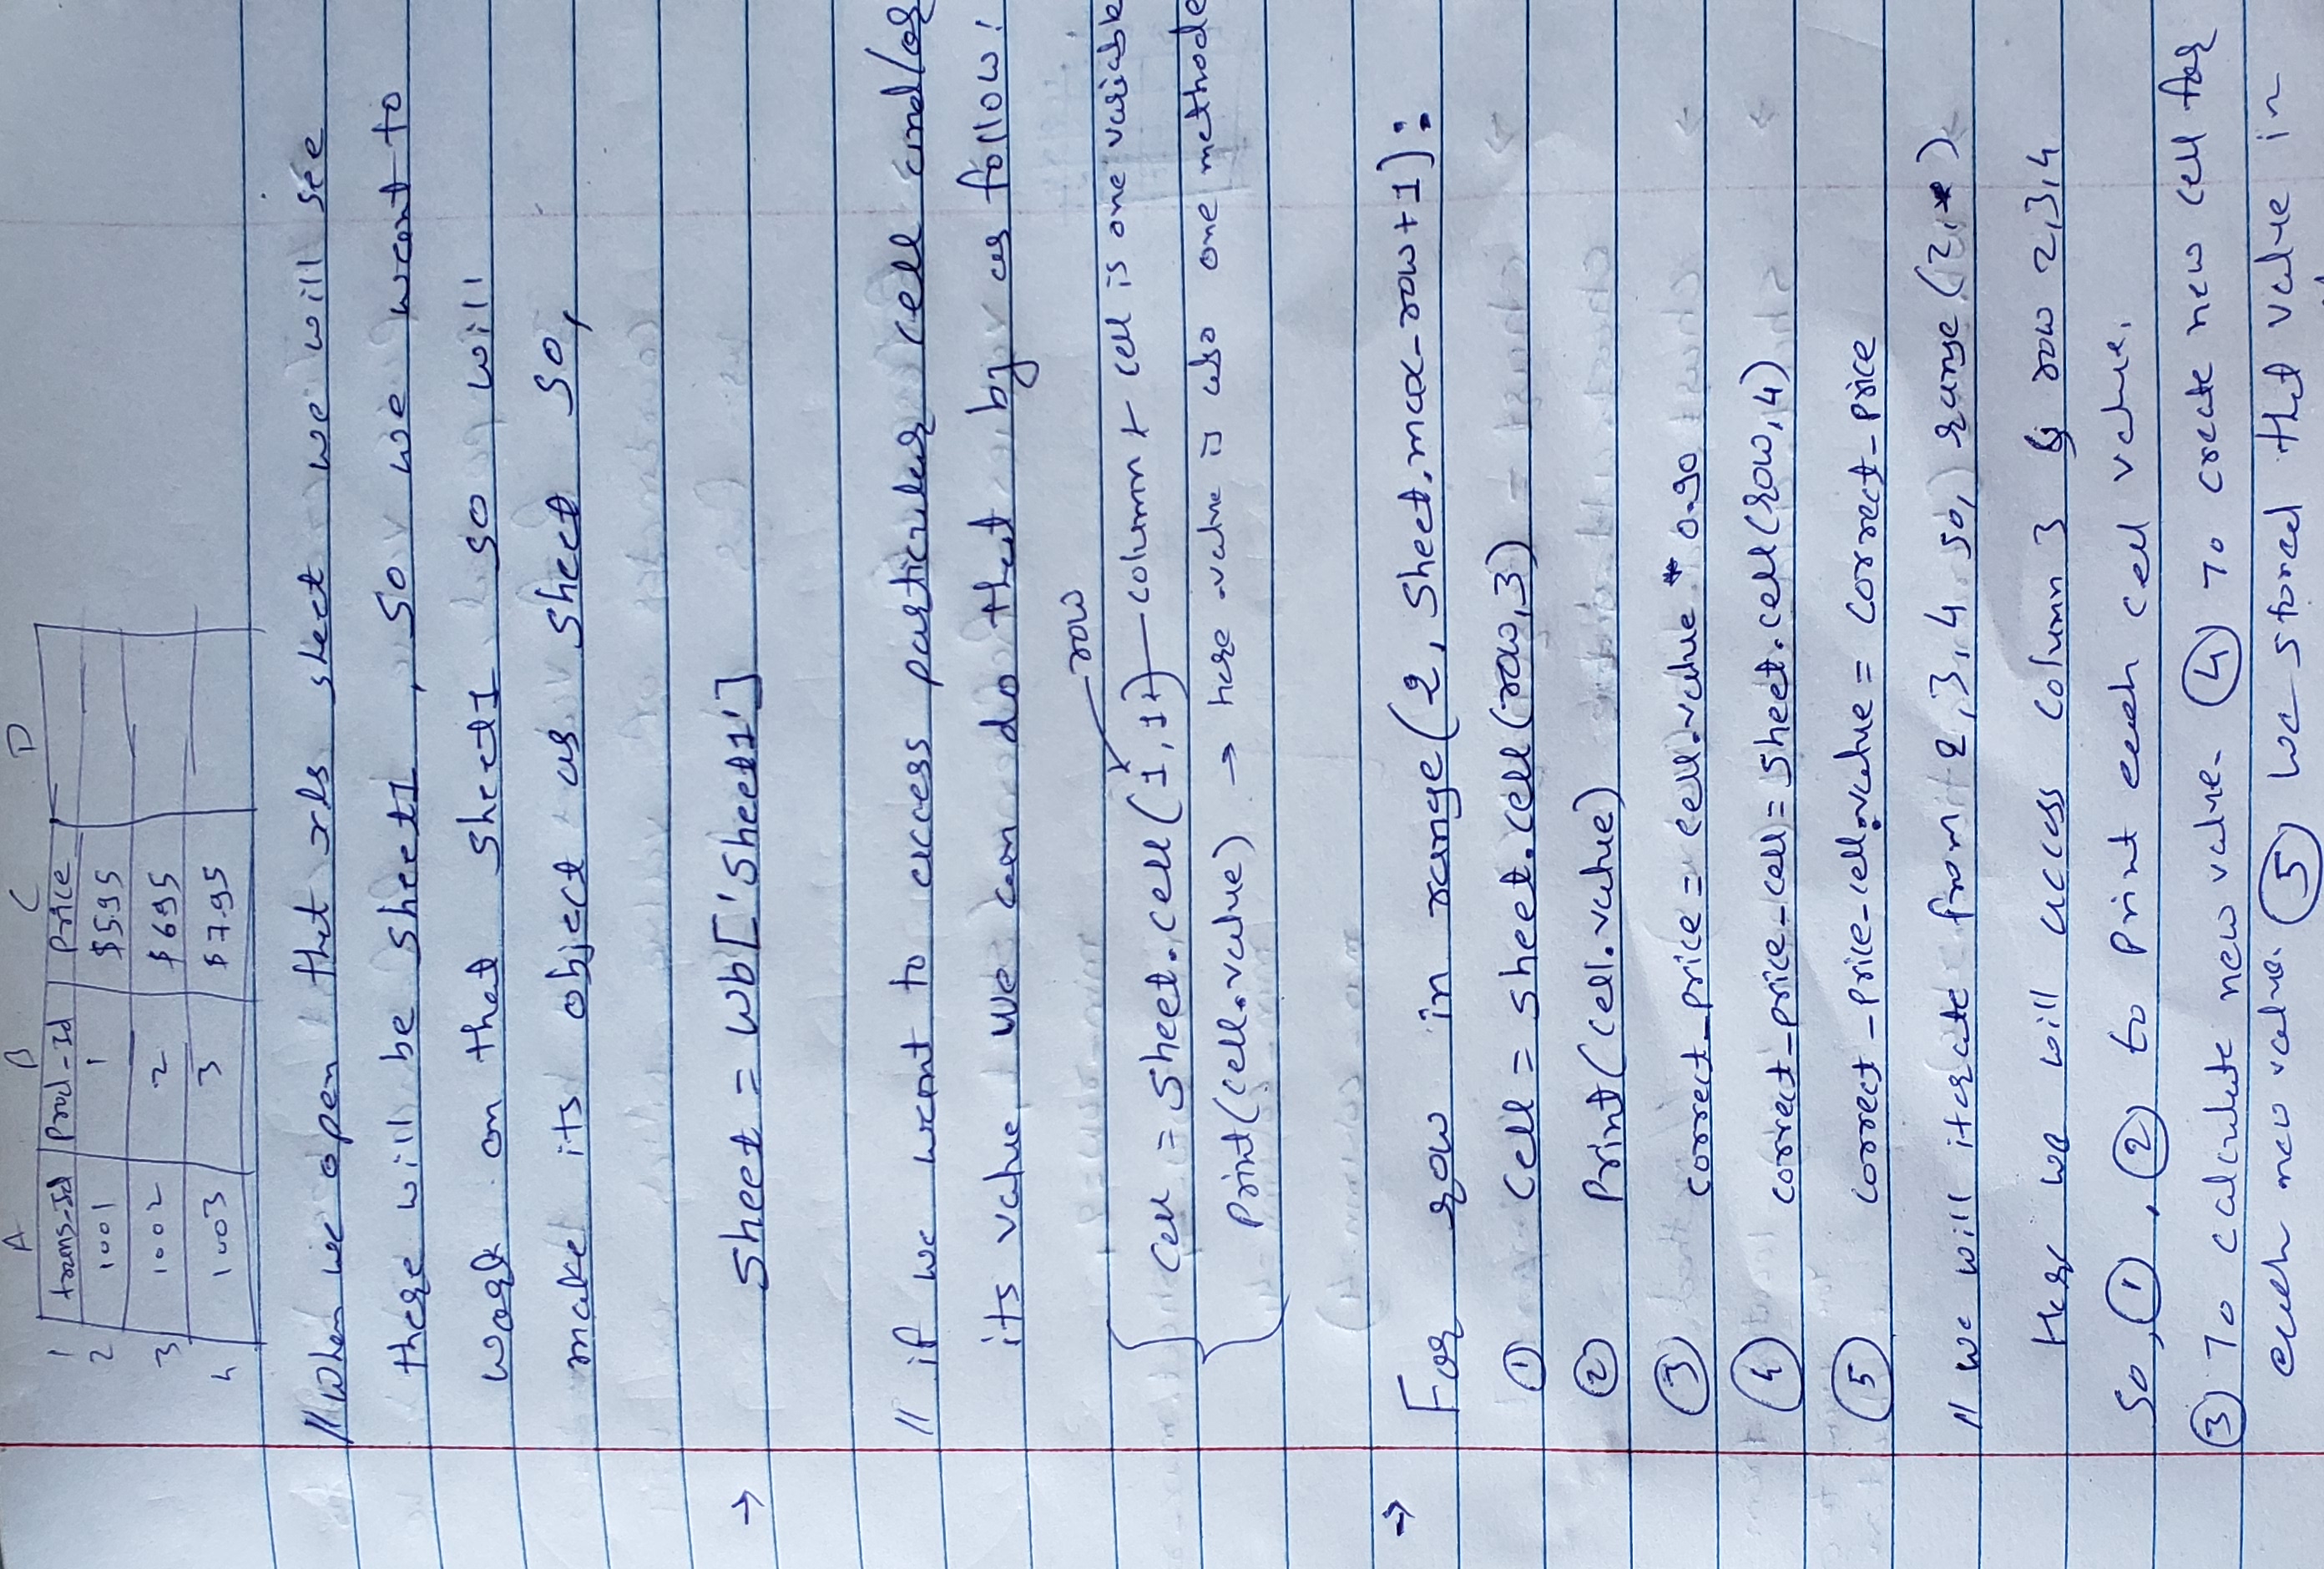 A B C D
1 trans-Id Prod-Id Price
2 1001 1 $5.95
3 1002 2 $6.95
4 1003 3 $7.95
// When we open that xls sheet we will see
there will be sheet1, so we want to
work on that sheet1 so will
make its object as sheet so,
→ sheet = wb['Sheet1']
// if we want to access particular cell and/or
its value, we can do that by as follow:
row
cell = sheet.cell(1,1) column & cell is one variable
print(cell.value) → here .value is also one methode
→ For row in range(2, sheet.max_row+1):
① cell = sheet.cell(row,3)
② Print(cell.value)
③ correct_price = cell.value * 0.90
④ correct_price_cell = sheet.cell(row,4)
⑤ correct_price_cell.value = correct_price
// we will iterate from 2,3,4 so, range(2, )
Here we will access column 3 row 2,3,4
so, ①, ② to print each cell value,
③ To calculate new value. ④ To create new cell for
each new value. ⑤ we stored that value in